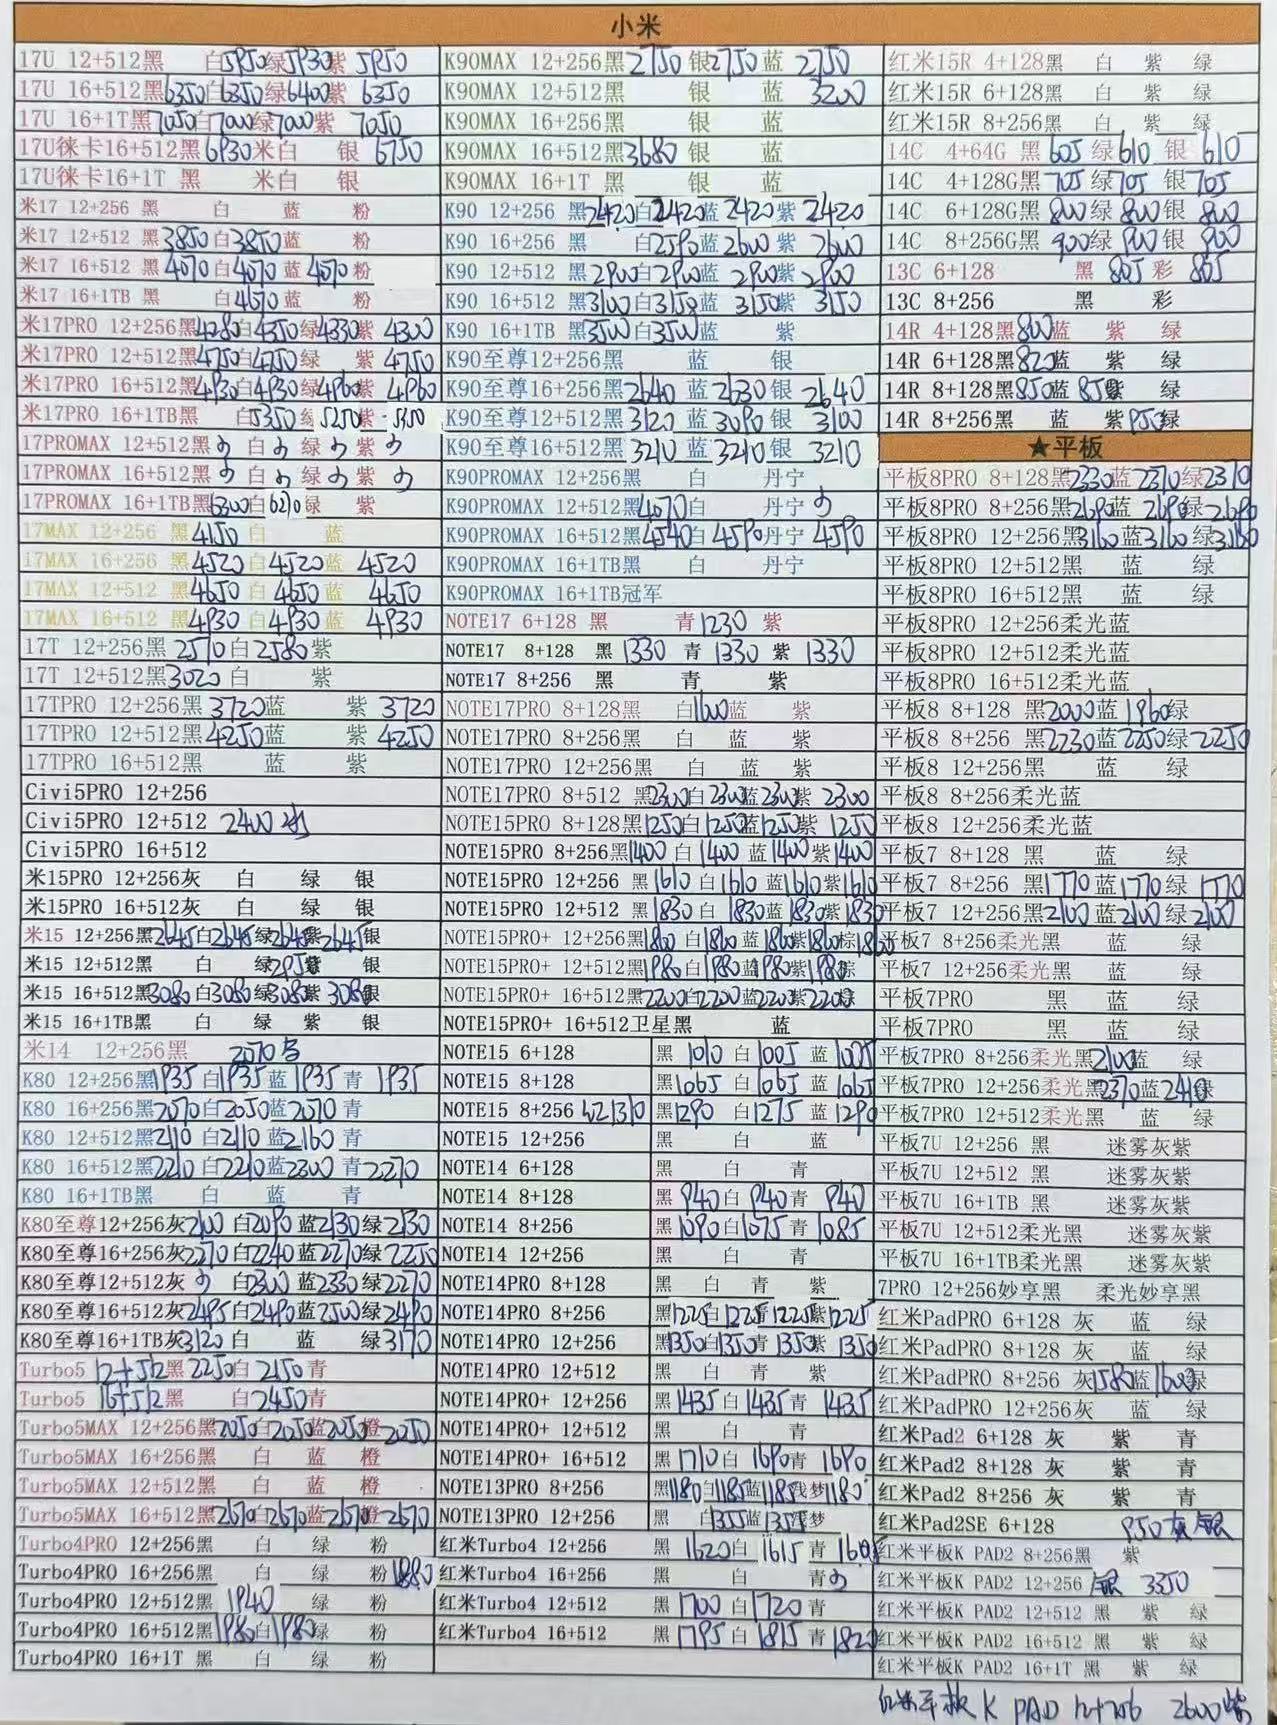 小米
17U 12+512黑 白5950绿5930紫 5950
17U 16+512黑6350白6350绿6400紫 6350
17U 16+1T黑7050白7000绿7000紫 7050
17U徕卡16+512黑6930米白 银 6750
17U徕卡16+1T 黑 米白 银
米17 12+256 黑 白 蓝 粉
米17 12+512 黑3850白3850蓝 粉
米17 16+512 黑4070白4070蓝4070粉
米17 16+1TB 黑 白4670蓝 粉
米17PRO 12+256黑4280白4350绿4330紫 4300
米17PRO 12+512黑4750白4750绿 紫 4750
米17PRO 16+512黑4930白4930绿4960紫 4960
米17PRO 16+1TB黑 白5350绿5250紫
17PROMAX 12+512黑 白 绿 紫
17PROMAX 16+512黑 白 绿 紫
17PROMAX 16+1TB黑6300白6270绿 紫
17MAX 12+256 黑4150白 蓝
17MAX 16+256 黑4520白4520蓝 4520
17MAX 12+512 黑4650白4650蓝 4650
17MAX 16+512 黑4930白4930蓝 4930
17T 12+256黑2570白2580紫
17T 12+512黑3020白 紫
17TPRO 12+256黑3720蓝 紫 3720
17TPRO 12+512黑4250蓝 紫 4250
17TPRO 16+512黑 蓝 紫
Civi5PRO 12+256
Civi5PRO 12+512 2400
Civi5PRO 16+512
米15PRO 12+256灰 白 绿 银
米15PRO 16+512灰 白 绿 银
米15 12+256黑2645白2645绿2645紫2645银
米15 12+512黑 白 绿2950紫 银
米15 16+512黑3080白3080绿3080紫3080银
米15 16+1TB黑 白 绿 紫 银
米14 12+256黑 2070
K80 12+256黑1935白1935蓝1935青 1935
K80 16+256黑2070白2050蓝2070青
K80 12+512黑2110白2110蓝2160青
K80 16+512黑2210白2210蓝2300青2270
K80 16+1TB黑 白 蓝 青
K80至尊12+256灰2100白2090蓝2130绿2130
K80至尊16+256灰2270白2240蓝2270绿2250
K80至尊12+512灰 白2300蓝2330绿2270
K80至尊16+512灰2495白2490蓝2500绿2490
K80至尊16+1TB灰3120白 蓝 绿3170
Turbo5 12+512黑2250白2150青
Turbo5 16+512黑 白2450青
Turbo5MAX 12+256黑2050白2050蓝2050橙2050
Turbo5MAX 16+256黑 白 蓝 橙
Turbo5MAX 12+512黑 白 蓝 橙
Turbo5MAX 16+512黑2670白2670蓝2670橙2670
Turbo4PRO 12+256黑 白 绿 粉
Turbo4PRO 16+256黑 白 绿 粉1880
Turbo4PRO 12+512黑1940 绿 粉
Turbo4PRO 16+512黑1980白1980绿 粉
Turbo4PRO 16+1T 黑 白 绿 粉
K90MAX 12+256黑2750银2750蓝 2750
K90MAX 12+512黑 银 蓝 3200
K90MAX 16+256黑 银 蓝
K90MAX 16+512黑3680银 蓝
K90MAX 16+1T 黑 银 蓝
K90 12+256 黑2420白2420蓝2420紫2420
K90 16+256 黑 白2590蓝2600紫 2600
K90 12+512 黑2900白2900蓝2900紫2900
K90 16+512 黑3100白3150蓝 3150紫3150
K90 16+1TB 黑3500白3500蓝 紫
K90至尊12+256黑 蓝 银
K90至尊16+256黑2640蓝2630银2640
K90至尊12+512黑3120蓝3090银3100
K90至尊16+512黑3210蓝3210银3210
K90PROMAX 12+256黑 白 丹宁
K90PROMAX 12+512黑4070白 丹宁
K90PROMAX 16+512黑4540白4590丹宁4590
K90PROMAX 16+1TB黑 白 丹宁
K90PROMAX 16+1TB冠军
NOTE17 6+128 黑 青1230紫
NOTE17 8+128 黑 1330青 1330紫 1330
NOTE17 8+256 黑 青 紫
NOTE17PRO 8+128黑 白1600蓝 紫
NOTE17PRO 8+256黑 白 蓝 紫
NOTE17PRO 12+256黑 白 蓝 紫
NOTE17PRO 8+512 黑2300白2300蓝2300紫 2300
NOTE15PRO 8+128黑1250白1250蓝1250紫 1250
NOTE15PRO 8+256黑1400白1400蓝1400紫1400
NOTE15PRO 12+256 黑1610白1610蓝1610紫1610
NOTE15PRO 12+512 黑1830白 1830蓝1830紫1830
NOTE15PRO+ 12+256黑1860白1860蓝1860紫1860棕1860
NOTE15PRO+ 12+512黑1980白1980蓝1980紫1980棕
NOTE15PRO+ 16+512黑2200白2200蓝2200紫2200棕
NOTE15PRO+ 16+512卫星黑 蓝
NOTE15 6+128 黑 1010白1005蓝1005
NOTE15 8+128 黑1065白1065蓝1065
NOTE15 8+256 黑1290白1275蓝1290
NOTE15 12+256 黑 白 蓝
NOTE14 6+128 黑 白 青
NOTE14 8+128 黑 940白940青 940
NOTE14 8+256 黑1090白1075青1085
NOTE14 12+256 黑 白 青
NOTE14PRO 8+128 黑 白 青 紫
NOTE14PRO 8+256 黑1225白1225青1225紫1225
NOTE14PRO 12+256 黑1350白1350青1350紫1350
NOTE14PRO 12+512 黑 白 青 紫
NOTE14PRO+ 12+256 黑1435白1435青1435
NOTE14PRO+ 12+512 黑 白 青
NOTE14PRO+ 16+512 黑1710白1690青1690
NOTE13PRO 8+256 黑1180白1185蓝1185浅梦1180
NOTE13PRO 12+256 黑 白1355蓝1355浅梦
红米Turbo4 12+256 黑 1620白 1615青
红米Turbo4 16+256 黑 白 青
红米Turbo4 12+512 黑1700白1720青
红米Turbo4 16+512 黑1795白1815青1820
红米15R 4+128黑 白 紫 绿
红米15R 6+128黑 白 紫 绿
红米15R 8+256黑 白 紫 绿
14C 4+64G 黑 605绿610银 610
14C 4+128G黑 705绿705银705
14C 6+128G黑 800绿 800银 800
14C 8+256G黑 900绿 900银 900
13C 6+128 黑 805彩 805
13C 8+256 黑 彩
14R 4+128黑800蓝 紫 绿
14R 6+128黑820蓝 紫 绿
14R 8+128黑850蓝850紫 绿
14R 8+256黑 蓝 紫950绿
★平板
平板8PRO 8+128黑2330蓝2370绿2370
平板8PRO 8+256黑2690蓝2690绿2690
平板8PRO 12+256黑3160蓝3160绿3160
平板8PRO 12+512黑 蓝 绿
平板8PRO 16+512黑 蓝 绿
平板8PRO 12+256柔光蓝
平板8PRO 12+512柔光蓝
平板8PRO 16+512柔光蓝
平板8 8+128 黑2000蓝1960绿
平板8 8+256 黑2230蓝2250绿2250
平板8 12+256黑 蓝 绿
平板8 8+256柔光蓝
平板8 12+256柔光蓝
平板7 8+128 黑 蓝 绿
平板7 8+256 黑1770蓝1770绿 1770
平板7 12+256黑2100蓝2100绿2100
平板7 8+256柔光黑 蓝 绿
平板7 12+256柔光黑 蓝 绿
平板7PRO 黑 蓝 绿
平板7PRO 黑 蓝 绿
平板7PRO 8+256柔光黑2100蓝 绿
平板7PRO 12+256柔光黑2370蓝2410绿
平板7PRO 12+512柔光黑 蓝 绿
平板7U 12+256 黑 迷雾灰紫
平板7U 12+512 黑 迷雾灰紫
平板7U 16+1TB 黑 迷雾灰紫
平板7U 12+512柔光黑 迷雾灰紫
平板7U 16+1TB柔光黑 迷雾灰紫
7PRO 12+256妙享黑 柔光妙享黑
红米PadPRO 6+128 灰 蓝 绿
红米PadPRO 8+128 灰 蓝 绿
红米PadPRO 8+256 灰1580蓝1600绿
红米PadPRO 12+256灰 蓝 绿
红米Pad2 6+128 灰 紫 青
红米Pad2 8+128 灰 紫 青
红米Pad2 8+256 灰 紫 青
红米Pad2SE 6+128 950灰 银
红米平板K PAD2 8+256黑 紫
红米平板K PAD2 12+256 银 3350
红米平板K PAD2 12+512 黑 紫 绿
红米平板K PAD2 16+512 黑 紫 绿
红米平板K PAD2 16+1T 黑 紫 绿
红米平板 K PAD 12+256 2600紫